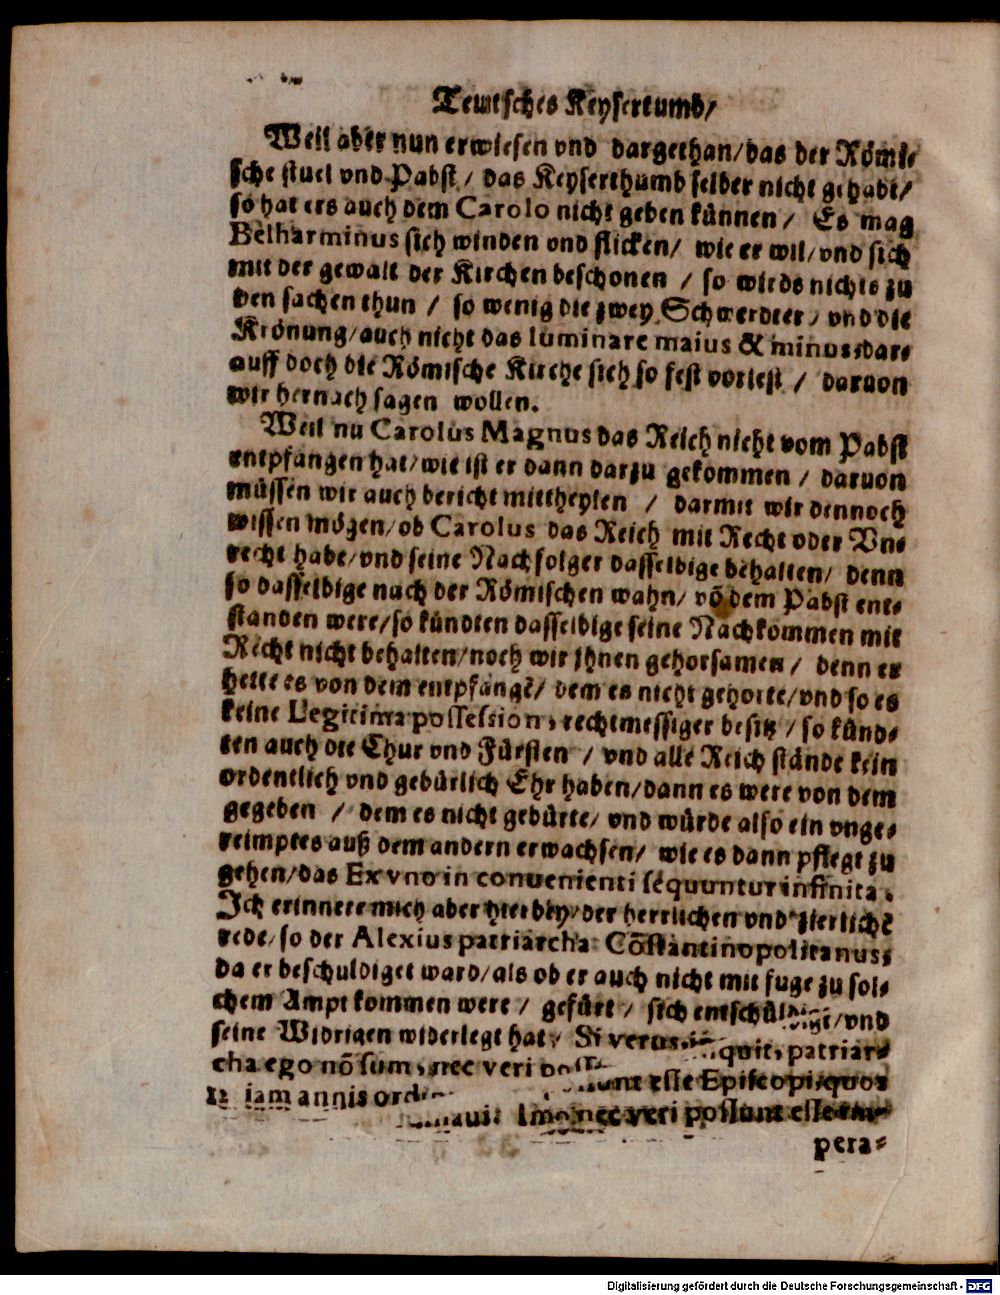 Teutsches Keysertumb/
Weil aber nun erwiesen vnd dargethan/das der Römi⸗
sche stuel vnd Pabst/ das Keyserthumb selber nicht gehabt/
so hat ers auch dem Carolo nicht geben künnen/ Es mag
Belharminus sich winden vnd flicken/ wie er wil/vnd sich
mit der gewalt der Kirchen beschonen / so wirds nichts zu
den sachen thun / so wenig die zwey Schwerdter/ vnd die
Krönung/auch nicht das luminare maius & minus,dar⸗
auff doch die Römische Kirche sich so fest vorlest / daruon
wir hernach sagen wollen.
Weil nu Carolus Magnus das Reich nicht vom Pabst
entpfangen hat/wie ist er dann darzu gekommen / daruon
müssen wir auch bericht mittheylen / darmit wir dennoch
wissen mögen/ob Carolus das Reich mit Recht oder Vn⸗
recht habe/vnd seine Nachfolger dasselbige behalten/ denn
so dasselbige nach der Römischen wahn/ võ dem Pabst ent⸗
standen were/so kündten dasselbige seine Nachkommen mit
Recht nicht behalten/noch wir jhnen gehorsamen/ denn er
hette es von dem entpfangẽ/ dem es nicht gehorte/vnd so es
keine Legitima possession, rechtmessiger besitz/so künd⸗
ten auch die Chur vnd Fürsten / vnd alle Reich stände kein
ordentlich vnd gebürlich Ehr haben/dann es were von dem
gegeben / dem es nicht gebürte/ vnd würde also ein vnge⸗
reimptes auß dem andern erwachsen/ wie es dann pflegt zu
gehen/das Ex vno in conuenienti sequuntur infinita.
Ich erinnere mich aber hierbey/der herrlichen vnd zierlichẽ
rede/so der Alexius patriarcha Cõstantinopolitanus,
da er beschuldiget ward/als ob er auch nicht mit fuge zu sol⸗
chem Ampt kommen were / gefürt / sich entschüldigt/vnd
seine Widrigen widerlegt hat/ Si verus, inquit, patriar⸗
cha ego nõ sum, nec veri possunt esse Episcopi,quos
11 iam annis ordinauit Imo nec veri possunt esse im⸗
pera⸗
Digitalisierung gefördert durch die Deutsche Forschungsgemeinschaft - DFG